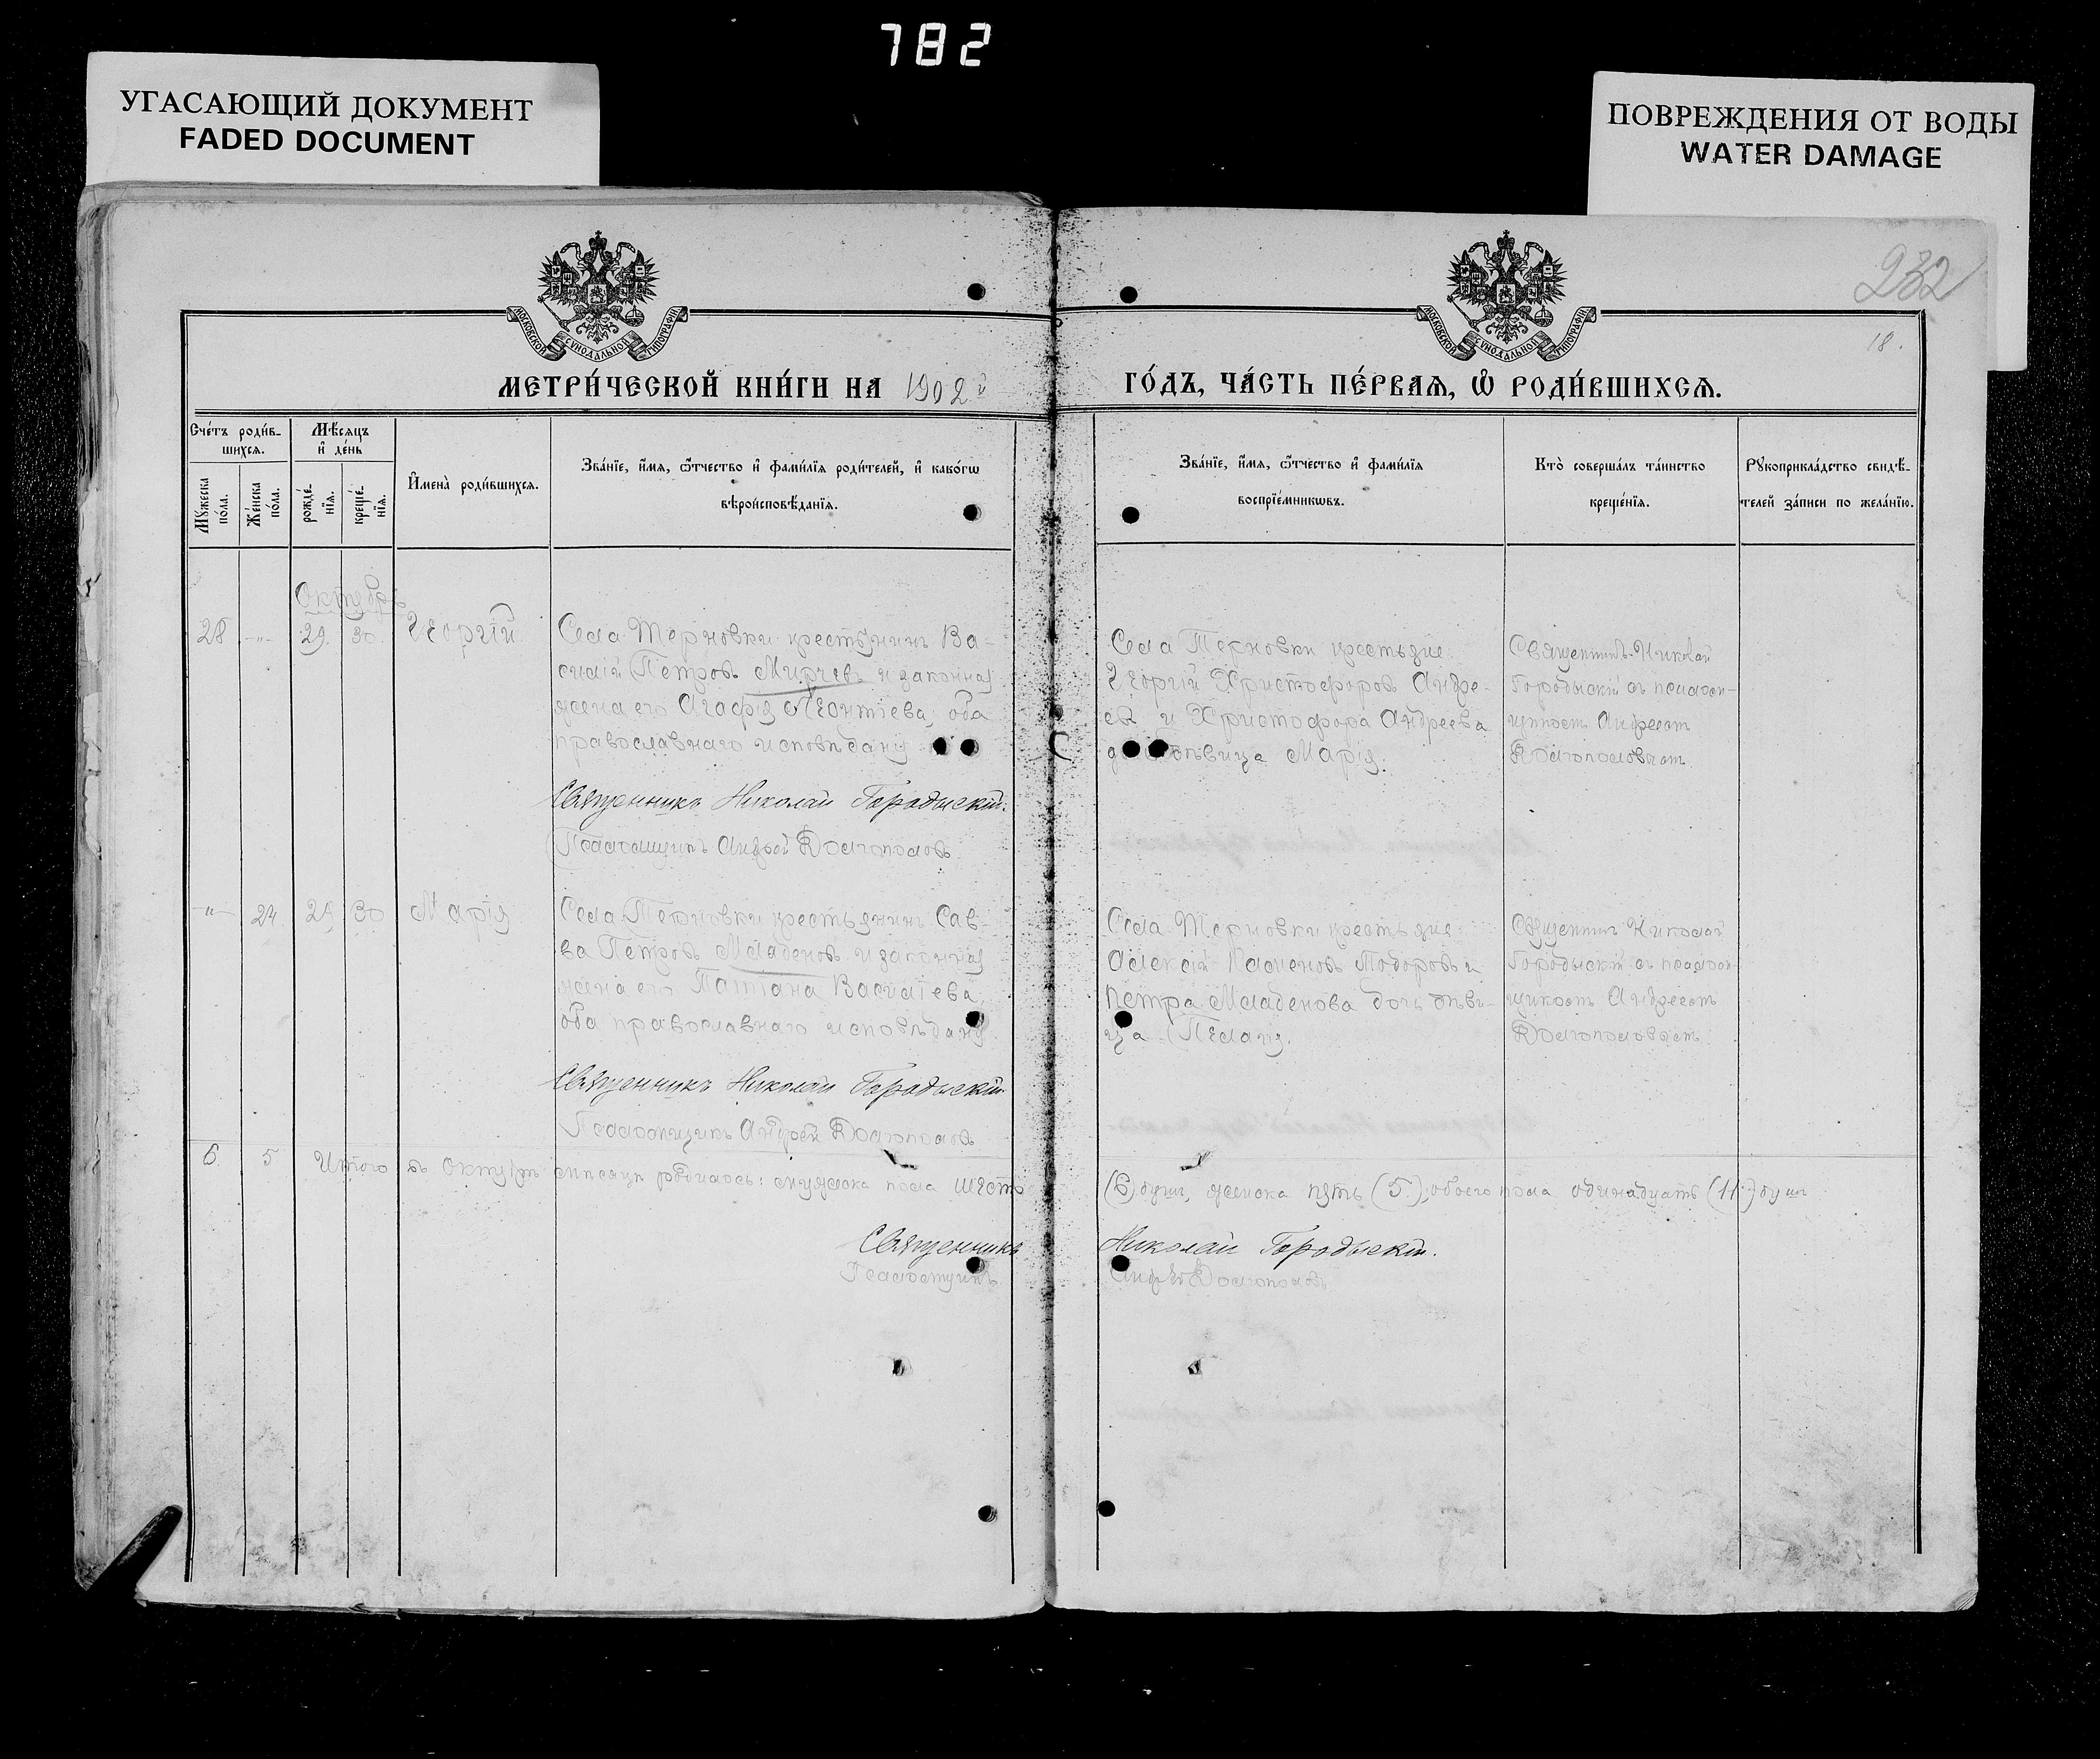 782
УГАСАЮЩИЙ ДОКУМЕНТ
FADED DOCUMENT
ПОВРЕЖДЕНИЯ ОТ ВОДЫ
WATER DAMAGE
232
18.
МОСКОВСКОЙ СѴНОДАЛЬНОЙ ТИПОГРАФІИ
МОСКОВСКОЙ СѴНОДАЛЬНОЙ ТИПОГРАФІИ
МЕТРИ́ЧЕСКОЙ КНИ́ГИ НА 1902й
ГО́ДЪ, ЧА́СТЬ ПЕ́РВАЯ, Ѡ҆ РОДИ́ВШИХСЯ.
Сче́тъ роди́в-
шихся.
Мѣ́сяцъ
и҆ де́нь
Мꙋ́жеска
по́ла.
Же́нска
по́ла.
рожде́-
нїя.
креще́-
нїя.
И҆мена̀ роди́вшихся.
Зва́нїе, и҆́мя, ѻ҆́тчество и҆ фами́лїя роди́телей, и҆ како́гѡ
вѣроисповѣ́данїя.
Зва́нїе, и҆́мя, ѻ҆́тчество и҆ фами́лїя
воспрїе́мникѡвъ.
Кто̀ соверша́лъ та́инство
креще́нїя.
Рꙋкоприкла́дство свидѣ́-
телей за́писи по жела́нїю.
Октябрь
28 -"- 29. 30. Георгій
Села Терновки крестьянинъ Ва-
силій Петровъ Мирчевъ и законная
жена его Агафія Леонтіева, оба
православнаго исповѣданія
Священникъ Николай Городыскій.
Псаломщикъ Андрей Долгополовъ
Села Терновки крестьяне:
Георгій Христофоровъ Андре-
евъ и Христофора Андреева
дѣвица Марія.
Священникъ Николай
Городыскій съ псалом-
щикомъ Андреемъ
Долгополовымъ.
-"- 24. 29 30 Марія
Села Терновки крестьянинъ Сав-
ва Петровъ Младеновъ и законная
жена его Татіана Василіева,
оба православнаго исповѣданія.
Священникъ Николай Городыскій.
Псаломщикъ Андрей Долгополовъ
Села Терновки крестьяне:
Алексій Тодоровъ и
Петра Младенова дочь дѣви-
ца Пелагія.
Священникъ Николай
Городыскій съ псалом-
щикомъ Андреемъ
Долгополовымъ.
6. 5 Итого въ Октябрѣ мѣсяцѣ родилось: мужска пола шесть
(6) душъ, женска пять (5), обоего пола одинадцать (11) душъ
Священникъ Николай Городыскій.
Псаломщикъ Андрей Долгополовъ